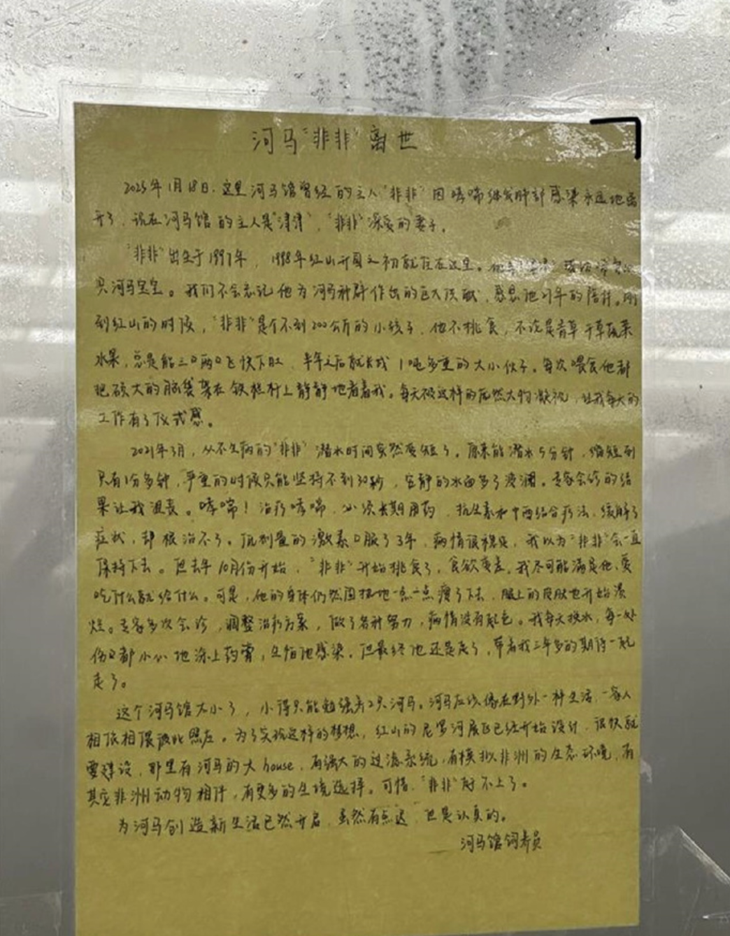 河马“非非”离世
2025年1月18日，这里河马馆曾经的主人“非非”因哮喘继发肺部感染永远地离
开了，现在河马馆的主人是“津津”，“非非”深爱的妻子。
“非非”出生于1997年，1998年红山开园之初就住在这里。他与“津津”
只河马宝宝。我们不会忘记他为河马种群作出的巨大贡献，感恩他多年的陪伴。刚
到红山的时候，“非非”是个不到200公斤的小伙子，他不挑食，不论是青草干草蔬菜
水果，总是能三口两口飞快下肚，半年之后就长成1吨多重的大小伙子。每次喂食他都
把硕大的脑袋靠在铁栏杆上静静地看着我。每天被这样的庞然大物凝视，让我每天的
工作有了仪式感。
2021年3月，从不生病的“非非”潜水时间突然变短了。原来能潜水5分钟，缩短到
只有1分多钟，严重的时候只能坚持不到30秒，安静的水面多了波澜。专家会诊的结
果让我沮丧。哮喘！治疗哮喘，必须长期用药，抗生素和中西结合疗法，缓解了
症状，却根治不了。低剂量的激素口服了3年，病情很稳定，我以为“非非”会一直
保持下去。但去年10月份开始，“非非”开始挑食了，食欲变差。我尽可能满足他，爱
吃什么就给什么。可是，他的身体仍然固执地一点一点瘦了下去，腿上的皮肤也开始溃
烂。专家多次会诊，调整治疗方案，做了各种努力，病情没有起色。我每天换水，每一处
伤口都小心地涂上药膏，生怕他感染，但最终他还是走了，带着我三年多的期待一起
走了。
这个河马馆太小了，小得只能勉强养2只河马。河马应该像在野外一种生活，一家人
相依相偎彼此照应。为了实现这样的梦想，红山的尼罗河展区已经开始设计，很快就
要建设，那里有河马的大house，有强大的过滤系统，有模拟非洲的生态环境，有
其它非洲动物相伴，有更多的生境选择。可惜，“非非”附不上了。
为河马创造新生活已然开启，虽然有点迟，但是认真的。
河马馆饲养员